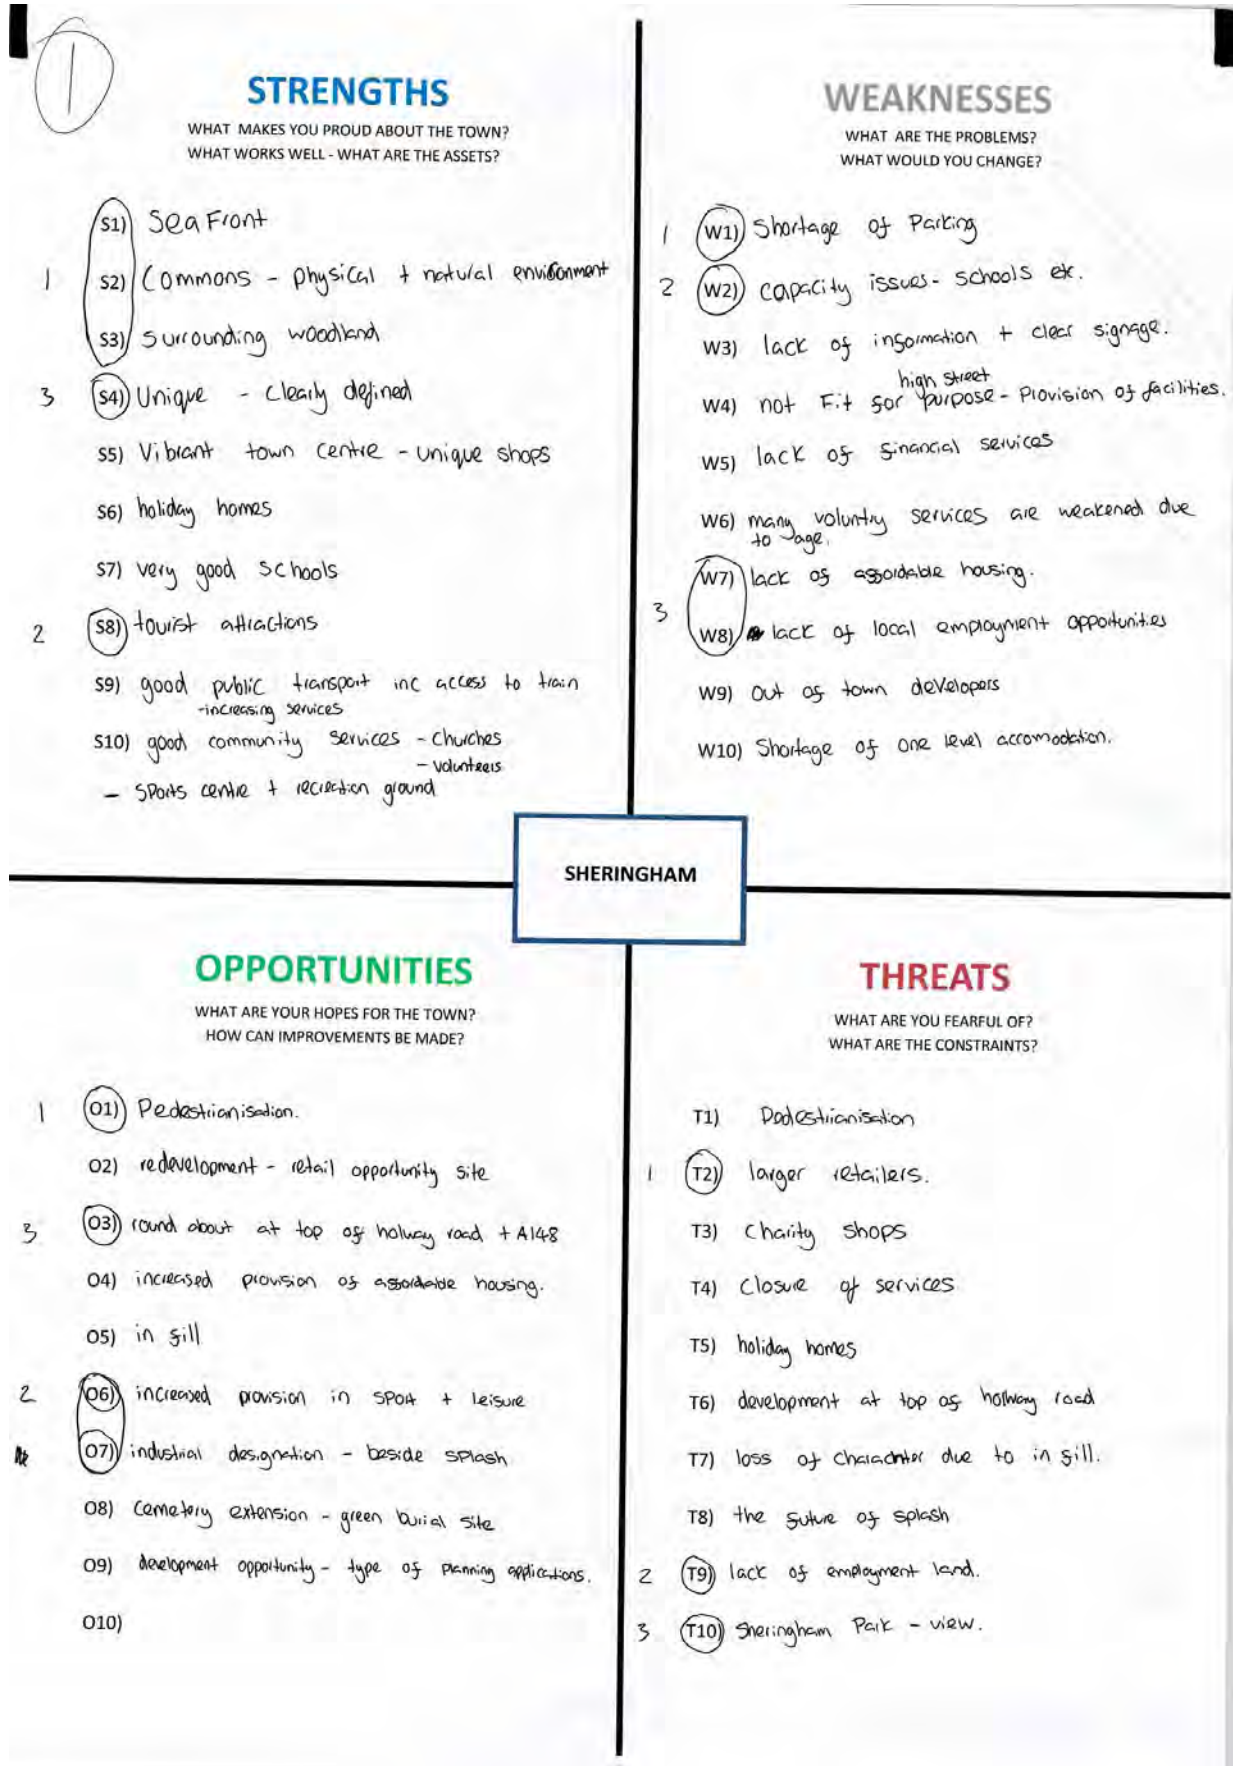 1
STRENGTHS
WHAT MAKES YOU PROUD ABOUT THE TOWN?
WHAT WORKS WELL - WHAT ARE THE ASSETS?
S1) Sea Front
1 S2) Commons - physical + natural environment
S3) Surrounding woodland
3 S4) Unique - clearly defined
S5) Vibrant town centre - unique shops
S6) holiday homes
S7) very good schools
2 S8) tourist attractions
S9) good public transport inc access to train
-increasing services
S10) good community services - churches
- volunteers
- Sports centre + recreation ground
WEAKNESSES
WHAT ARE THE PROBLEMS?
WHAT WOULD YOU CHANGE?
1 W1) Shortage of Parking
2 W2) capacity issues- schools etc.
W3) lack of information + clear signage.
high street
W4) not Fit for purpose - Provision of facilities.
W5) lack of financial services
W6) many voluntry services are weakened due
to age.
W7) lack of affordable housing.
3
W8) lack of local employment opportunities
W9) Out of town developers
W10) Shortage of one level accomodation.
SHERINGHAM
OPPORTUNITIES
WHAT ARE YOUR HOPES FOR THE TOWN?
HOW CAN IMPROVEMENTS BE MADE?
1 O1) Pedestrianisation.
O2) redevelopment - retail opportunity site
3 O3) round about at top of holway road + A148
O4) increased provision of affordable housing.
O5) in fill
2 O6) increased provision in sport + leisure
O7) industrial designation - beside splash
O8) Cemetery extension - green burial site
O9) development opportunity - type of planning applications.
O10)
THREATS
WHAT ARE YOU FEARFUL OF?
WHAT ARE THE CONSTRAINTS?
T1) Pedestrianisation
1 T2) larger retailers.
T3) Charity Shops
T4) Closure of services
T5) holiday homes
T6) development at top of holway road
T7) loss of charachter due to in fill.
T8) the future of splash
2 T9) lack of employment land.
3 T10) Sheringham Park - view.